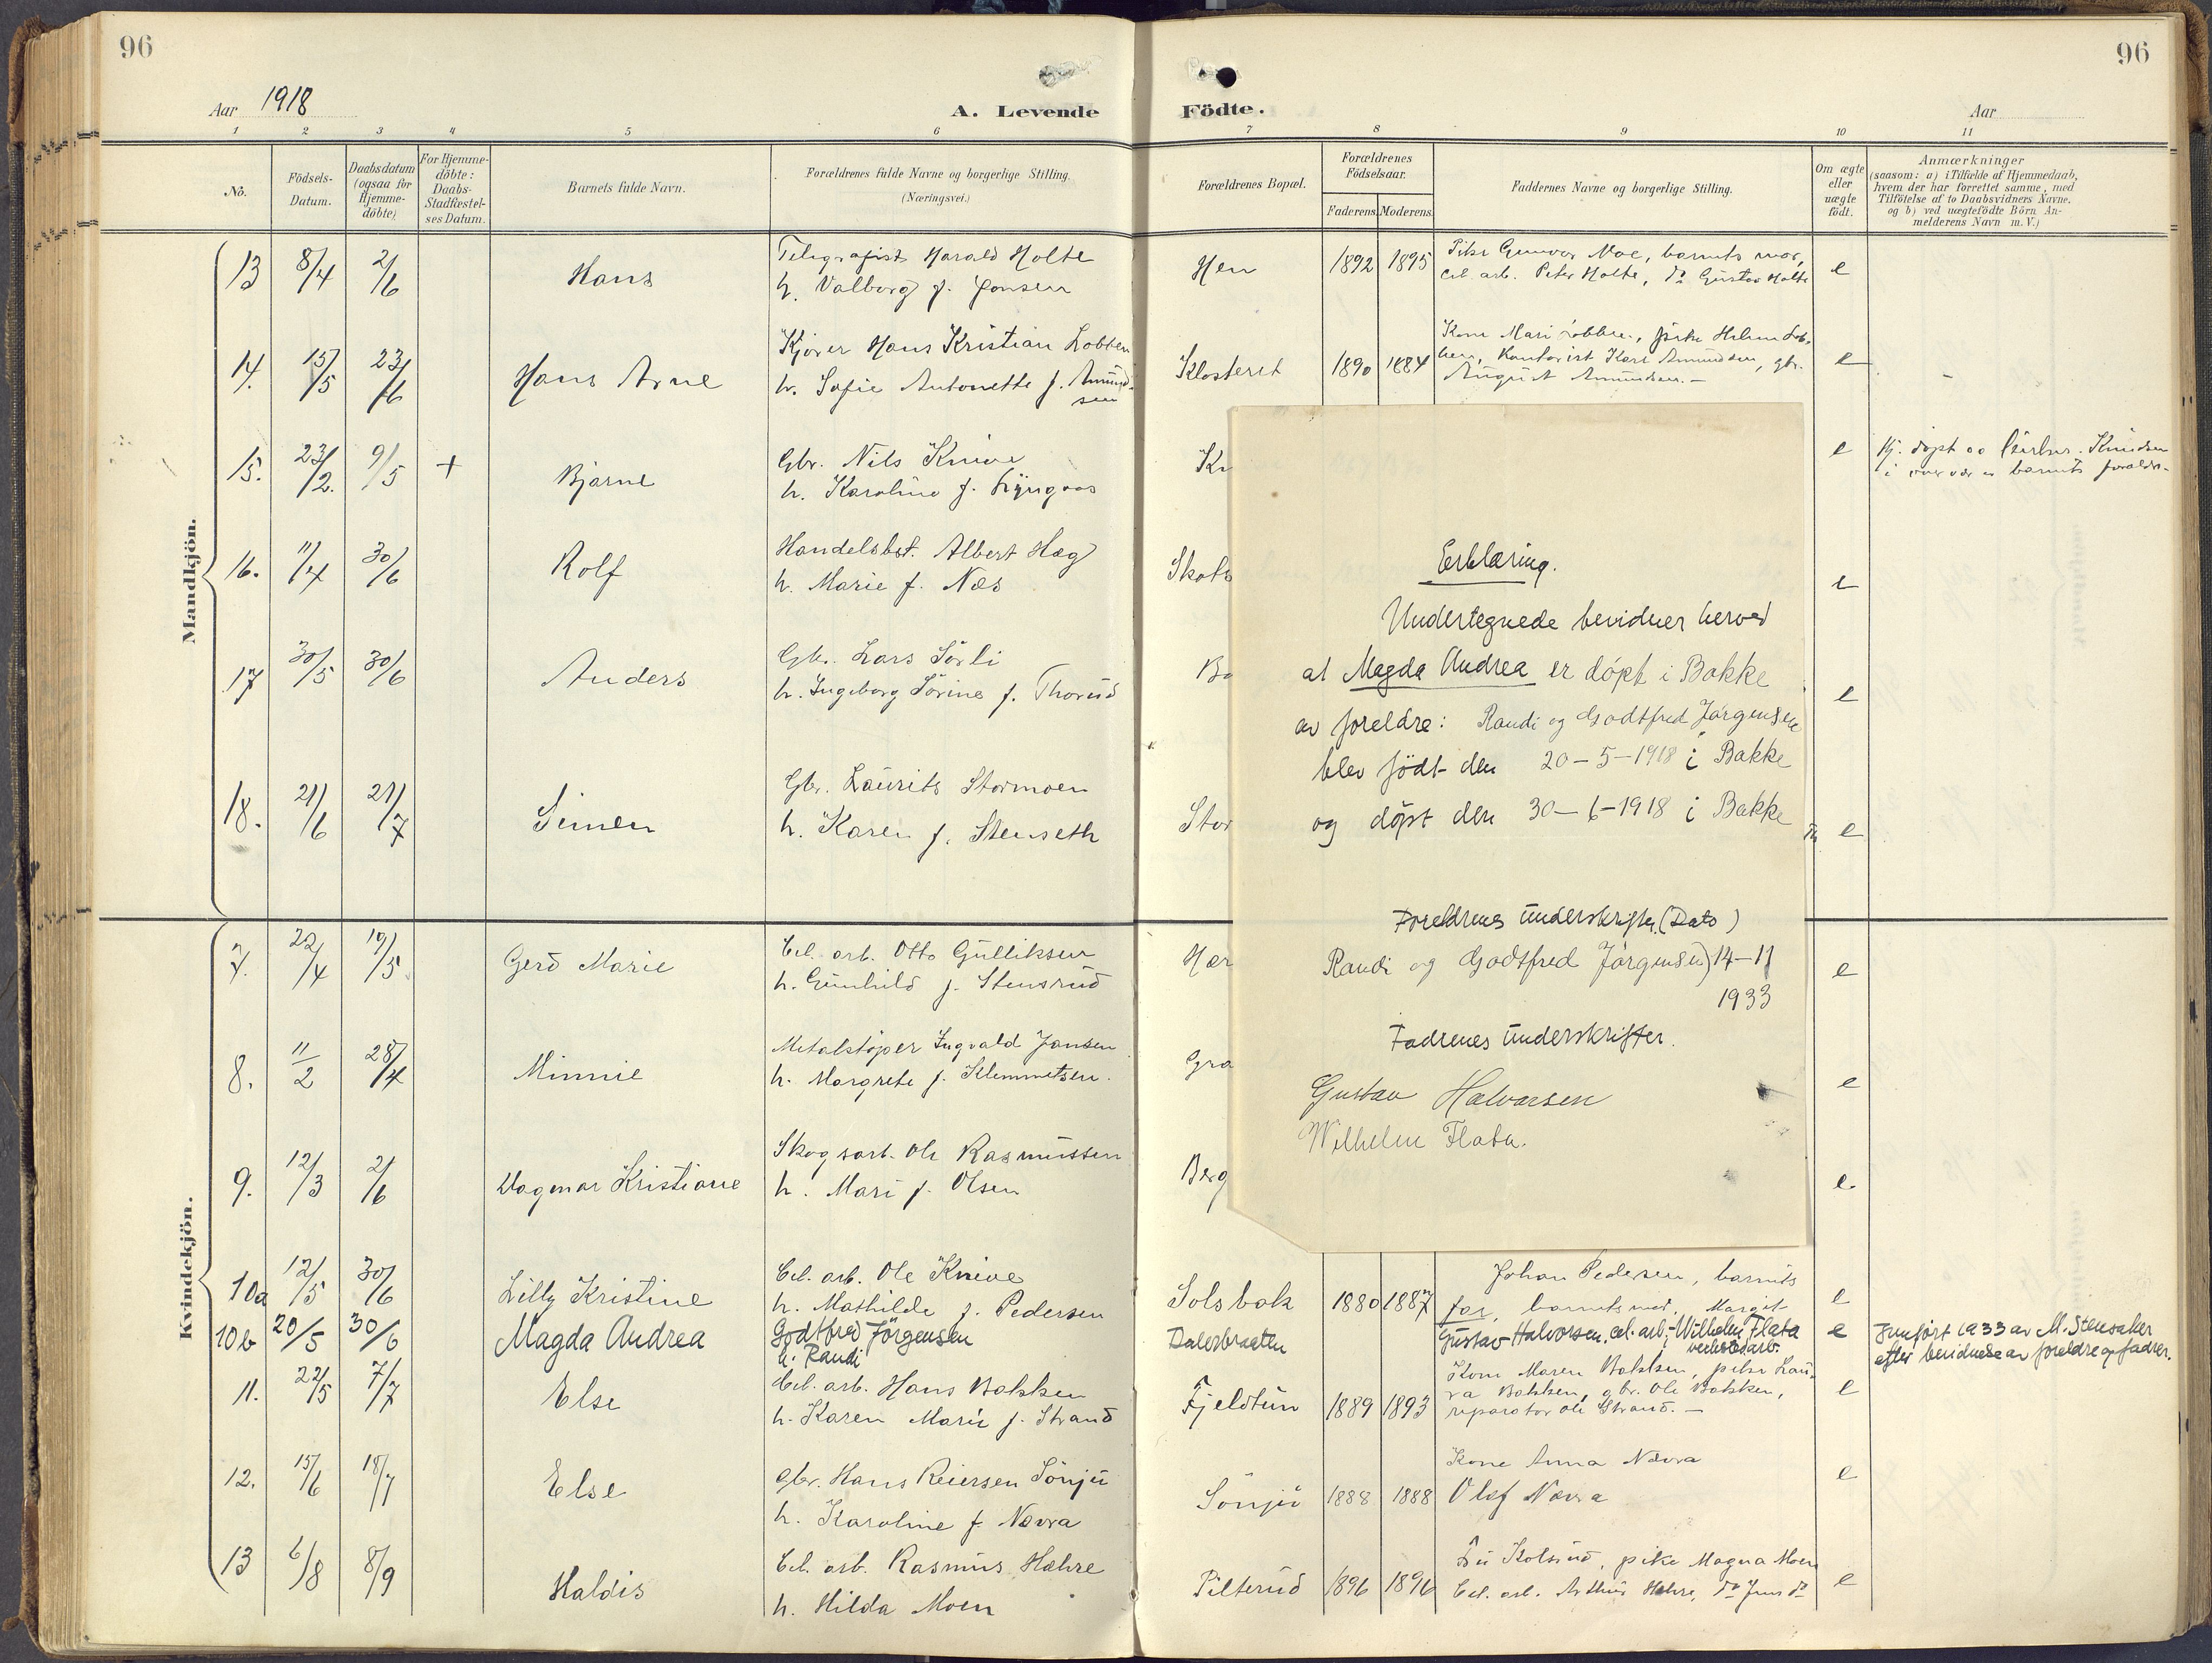 96
96
Aar 1918
A. Levende Födte.
Aar
1 2 3 4 5 6 7 8 9 10 11
No.
Födsels-
Datum.
Daabsdatum
(ogsaa for
Hjemme-
döbte)
For Hjemme-
döbte:
Daabs-
Stadfæstel-
ses Datum.
Barnets fulde Navn.
Forældrenes fulde Navne og borgerlige Stilling.
(Næringsvei.)
Forældrenes Bopæl.
Forældrenes
Födselsaar.
Faderens. Moderens.
Faddernes Navne og borgerlige Stilling.
Om ægte
eller
uægte
födt.
Anmærkninger
(saasom: a) i Tilfælde af Hjemmedaab,
hvem der har forrettet samme, med
Tilföielse af to Daabsvidners Navne.
og b) ved uægtefödte Börn An-
melderens Navn m. V.)
Mandkjön.
13 8/4 2/6 Hans Telegrafist Harald Holte Hen 1892 1895 Pike Gunvor Moe, barnets mor, e
h. Valborg f. Jonsen cel. arb. Peter Holte, do Gustav Holte
14. 15/5 23/6 Hans Arne Kjører Hans Kristian Lobben Klosteret 1890 1884 Kone Mari Lobben, pike Helene Lob- e
h. Sofie Antonette f. Amund- ben, Kontorist Karl Amundsen, gbr.
sen August Amundsen. –
15. 23/2. 9/5 + Bjarne Gbr. Nils Knive Kn e Hj. døpt
h. Karoline f. Lyngaas i barnets foreldre.
16. 11/4 30/6 Rolf Handelsbet. Albert Hæg Skots e
h. Marie f. Næs
17 30/5 30/6 Anders Gbr. Lars Sörli Ba e
h. Ingeborg Sörine f. Thorud
18. 21/6 21/7 Simen Gbr. Laurits Stormoen Stor e
h. Karen f. Stenseth
Erklæring.
Undertegnede bevidner herved
at Magda Andrea er döpt i Bakke
av foreldre: Randi og Godtfred Jörgensen
blev födt den 20-5-1918 i Bakke
og döpt den 30-6-1918 i Bakke
Foreldrenes underskrifter (Dato)
Randi og Godtfred Jörgensen 14-11
1933
Fadrenes underskrifter.
Gustav Halvorsen
Wilhelm Flata.
Kvindekjön.
7. 22/4 19/5 Gerd Marie Cel. arb. Otto Gulliksen Hær e
h. Gunhild f. Stensrud
8. 11/2 28/4 Minnie Metalstøper Ingvald Jansen Gra e
h. Margrete f. Klemmetsen.
9. 12/3 2/6 Dagmar Kristiane Skogsarb. Ole Rasmussen Berg e
h. Mari f. Olsen
10a 12/5 30/6 Lilly Kristine Cel. arb. Ole Knive Solsbak 1880 1887 Johan Pedersen, barnets e
h. Mathilde f. Pedersen far, barnets mor, Margit
10b 20/5 30/6 Magda Andrea Godtfred Jörgensen Dalsbraaten Gustav Halvorsen, cel. arb., Wilhelm Flata e Innført 1933 av M. Stensaker
h. Randi verkstedarb. efter bevidnelse av foreldre og fadrer.
11. 22/5 7/7 Else Cel. arb. Hans Bakken Fjeldtun 1889 1893 Kone Maren Bakken, pike Lau- e
h. Karen Marie f. Strand ra Bakken, gbr. Ole Bakken,
reparatør Ole Strand. –
12. 15/6 18/7 Else Gbr. Hans Reiersen Sönju Sönju 1888 1888 Kone Anna Nævra e
h. Karoline f. Nævra Olaf Nævra
13 6/8 8/9 Haldis Cel. arb. Rasmus Hæhre Pilterud 1896 1896 Kolsrud, pike Magna Moen e
h. Hilda Moen Cel. arb. Arthur Hæhre, do Jens do